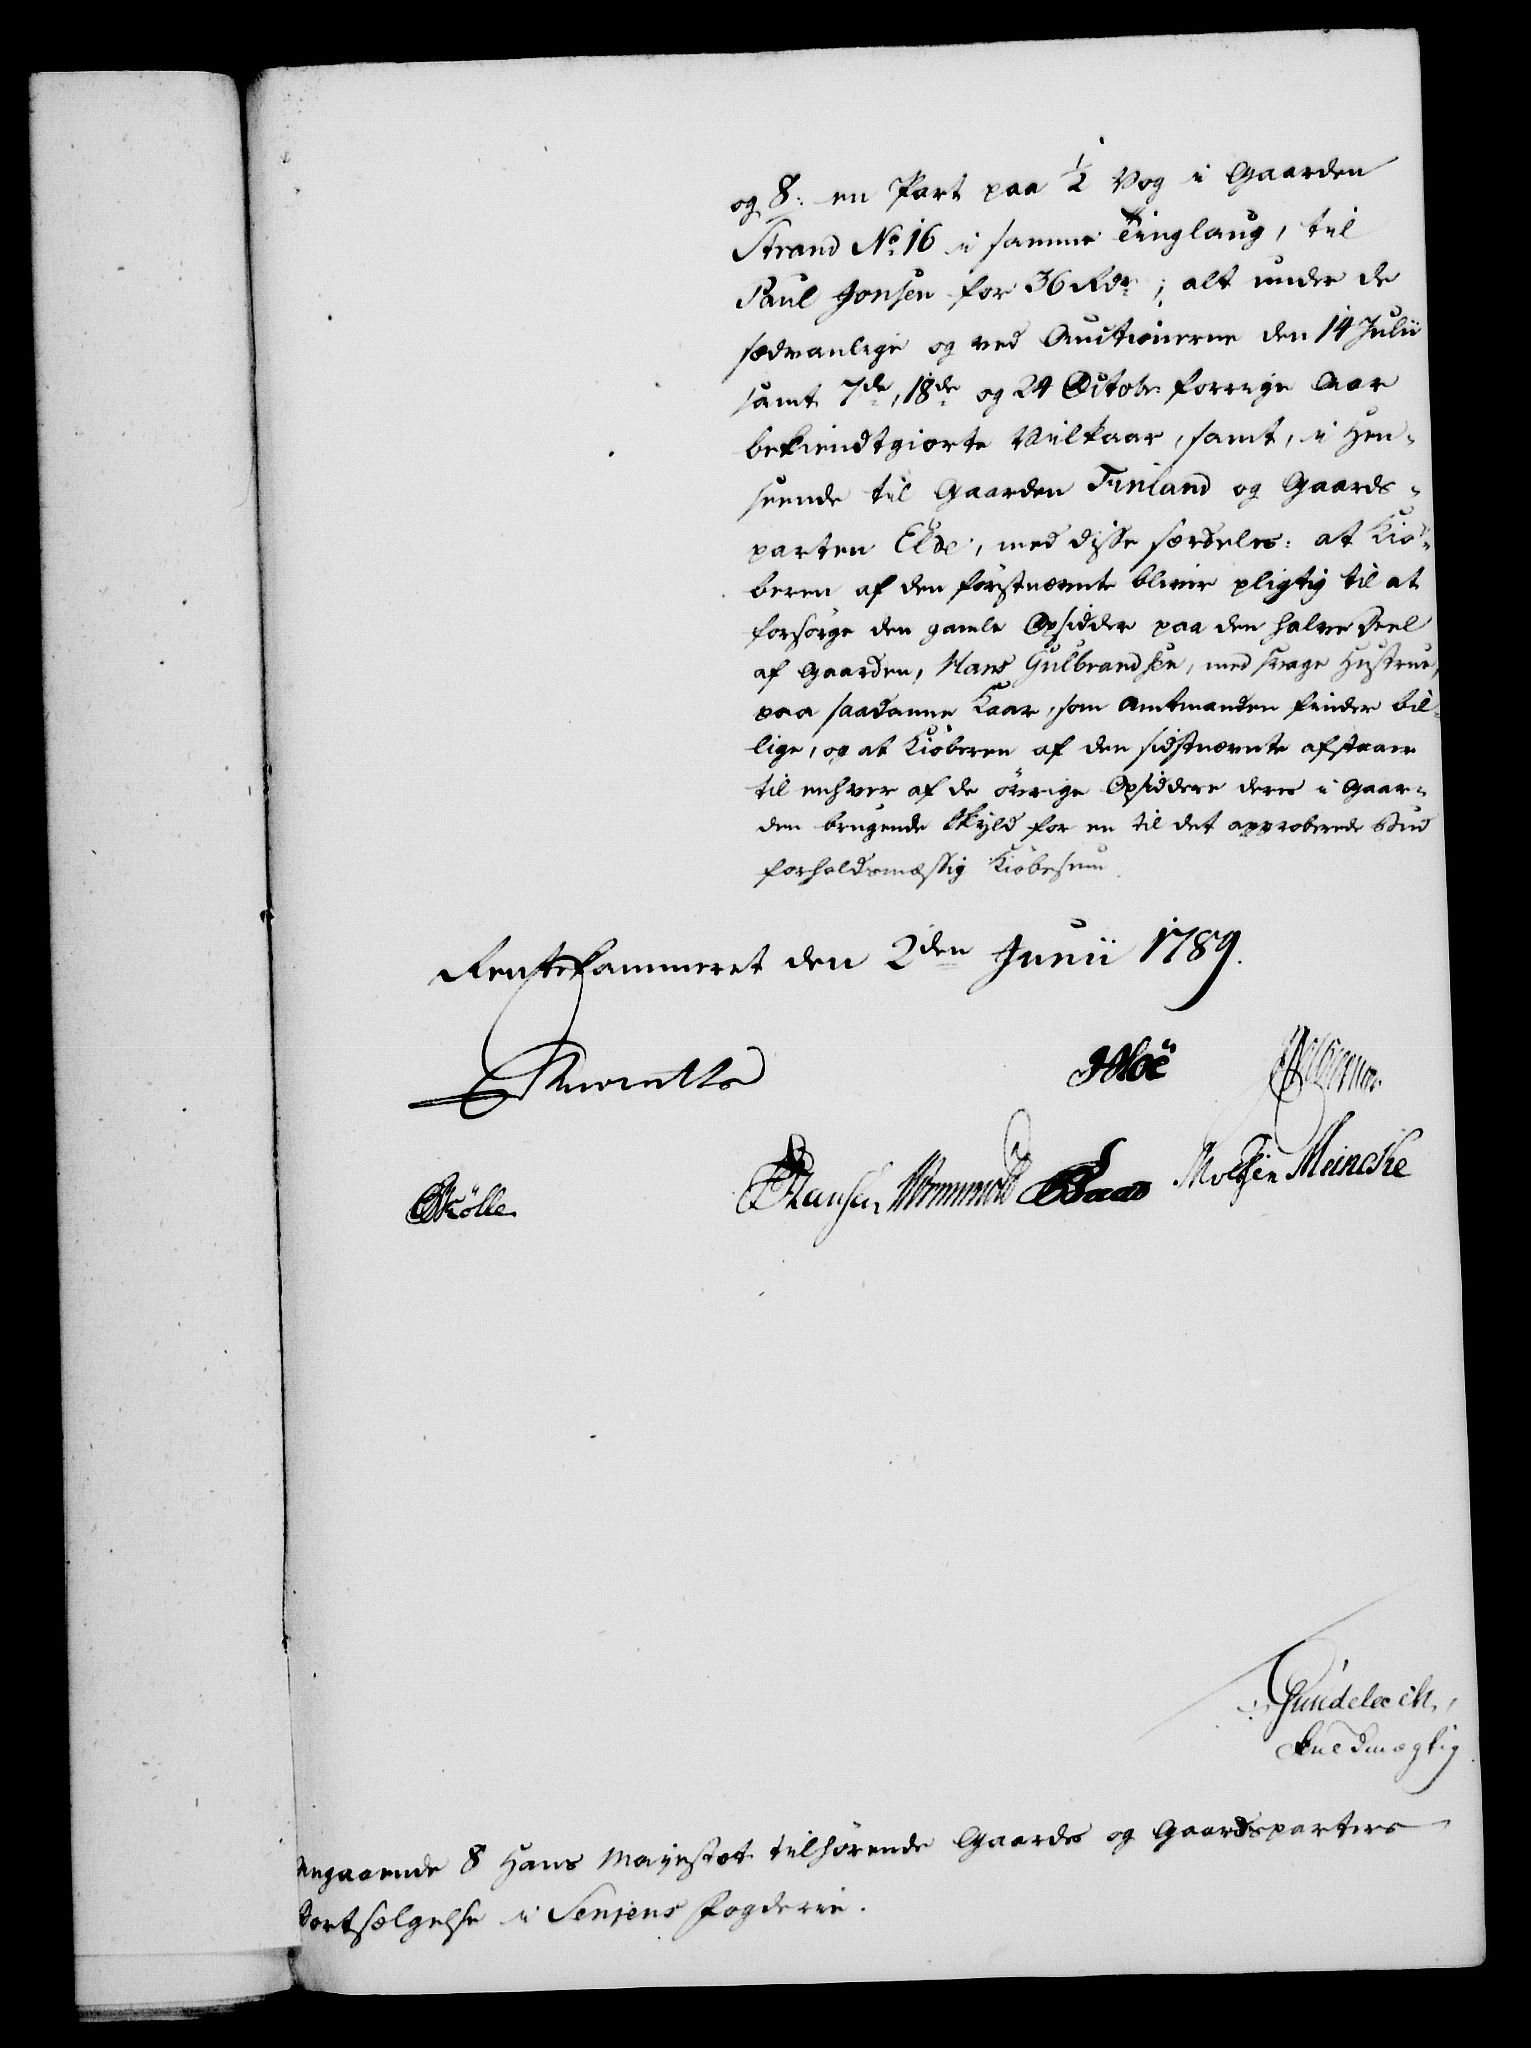 og 8: en Part paa ½ Vog i Gaarden
Strand No 16 i samme Tinglaug, til
Paul Jonsen for 36 Rdr; alt under de
sædvanlige og ved Auctionerne den 14 Julii
samt 7de, 18de og 24 Octobr: forrige Aar
bekiendtgiorte Vilkaar, samt, i Hen-
seende til Gaarden Finland og Gaards-
parten Elde, med disse særdeles: at Kiö-
beren af den förstnævnte bliver pligtig til at
forsörge den gamle Opsidder paa den halve Deel
af Gaarden, Hans Gulbrandsen, med svage Hustrue,
paa saadanne Kaar, som Amtmanden finder bil-
lige, og at Kiöberen af den sidstnævnte afstaaer
til enhver af de övrige Opsiddere deres i Gaar-
den brugende Skyld for en til det approberede Bud
forholdsmæssig Kiöbesum.
Rentekammeret den 2den Junii 1789.
JHoë
Skölle
Hansen Wormskiold Moltzen Meincke
Gundelach,
Fuldmægtig.
Angaaende 8 Hans Mayestæt tilhörende Gaards og Gaardsparters
Bortsælgelse i Senjens Fogderie.